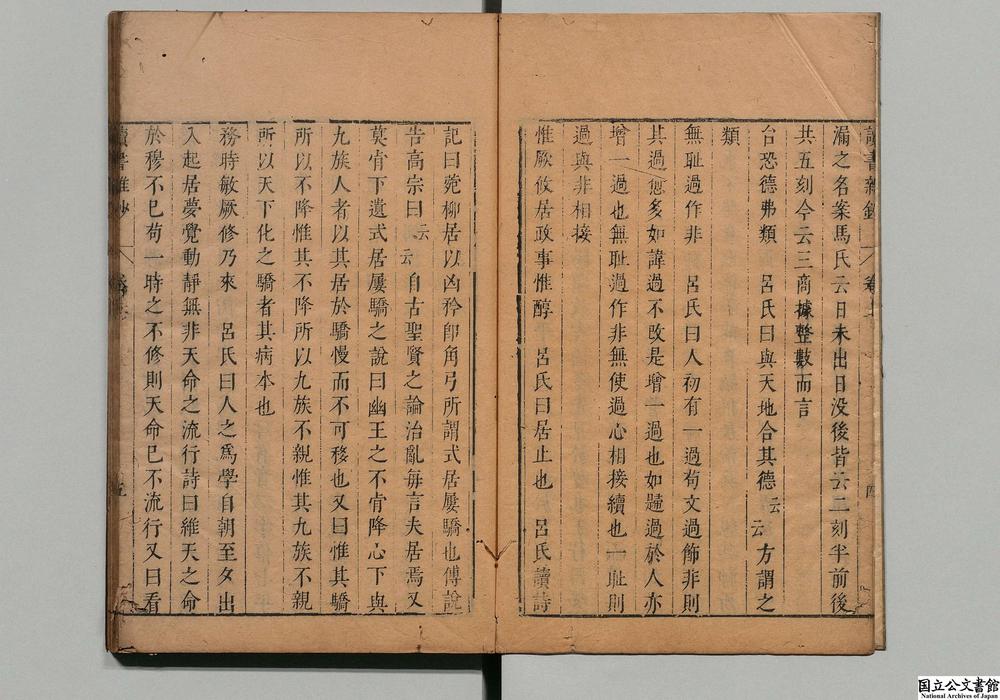 漏之名案馬氏云日未出日没後皆云二刻半前後
共五刻今云三商據整數而言
台恐德弗類　呂氏曰與天地合其德云云方謂之
類
無恥過作非　呂氏曰人初有一過茍文過飾非則
其過愈多如諱過不改是增一過也如遂過於人亦
增一過也無恥過作非無使過心相接續也一恥則
過與非相接
惟厥攸居政事惟醇　呂氏曰居止也　呂氏讀詩
記曰菀柳居以凶矜卽角弓所謂式居屢驕也傅說
告高宗曰云云自古聖賢之論治亂每言夫居焉又
莫肯下遺式居屢驕之說曰幽王之不肯降心下與
九族人者以其居於驕慢而不可移也又曰惟其驕
所以不降惟其不降所以九族不親惟其九族不親
所以天下化之驕者其病本也
務時敏厥修乃來　呂氏曰人之爲學自朝至夕出
入起居夢覺動靜無非天命之流行詩曰維天之命
於穆不已茍一時之不修則天命已不流行又曰看
五
国立公文書館
National Archives of Japan